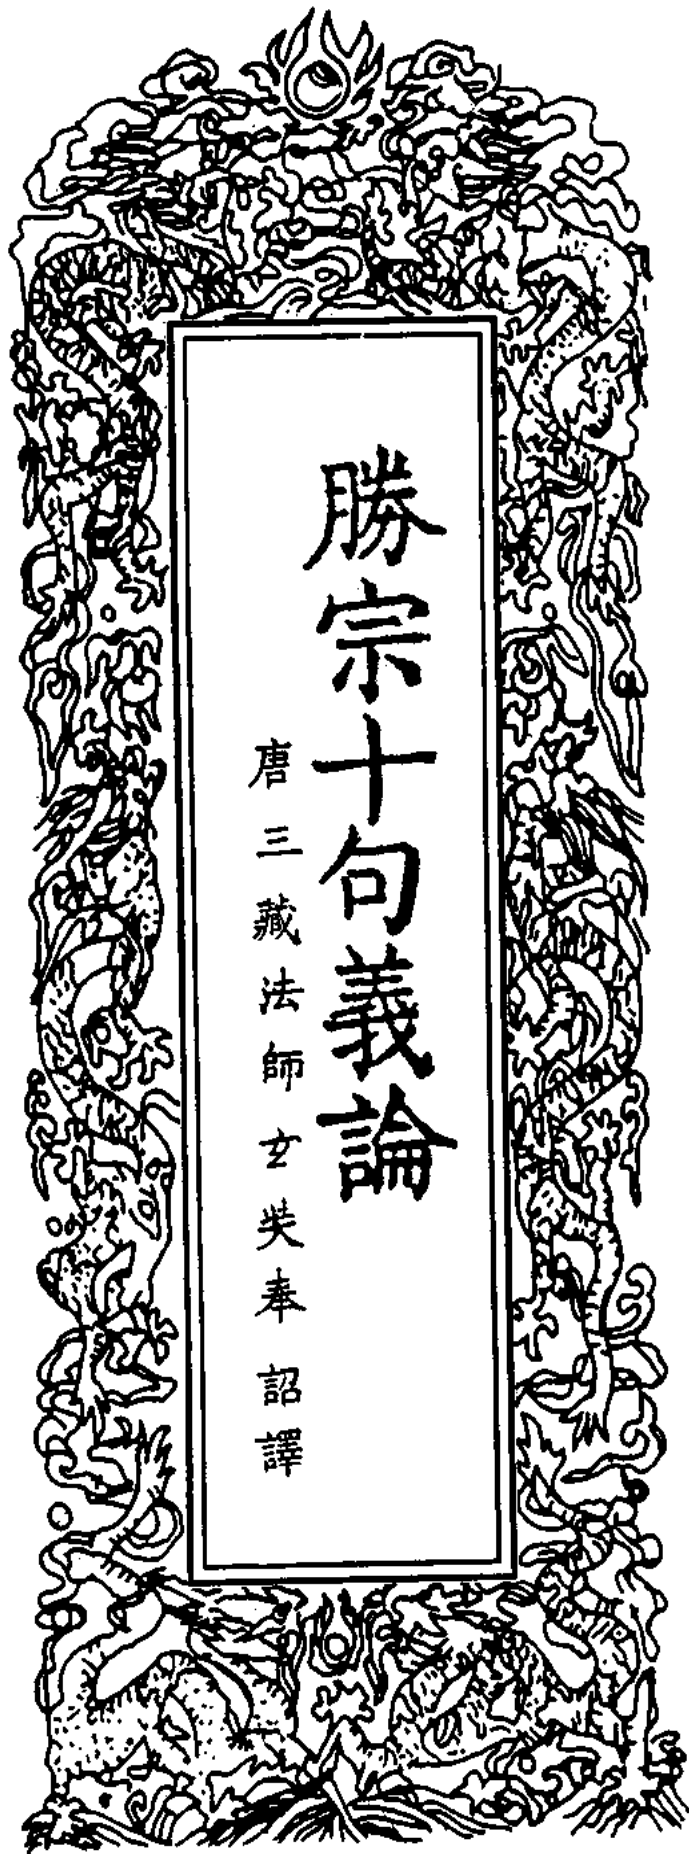 勝宗十句義論
唐三藏法師玄奘奉 詔譯